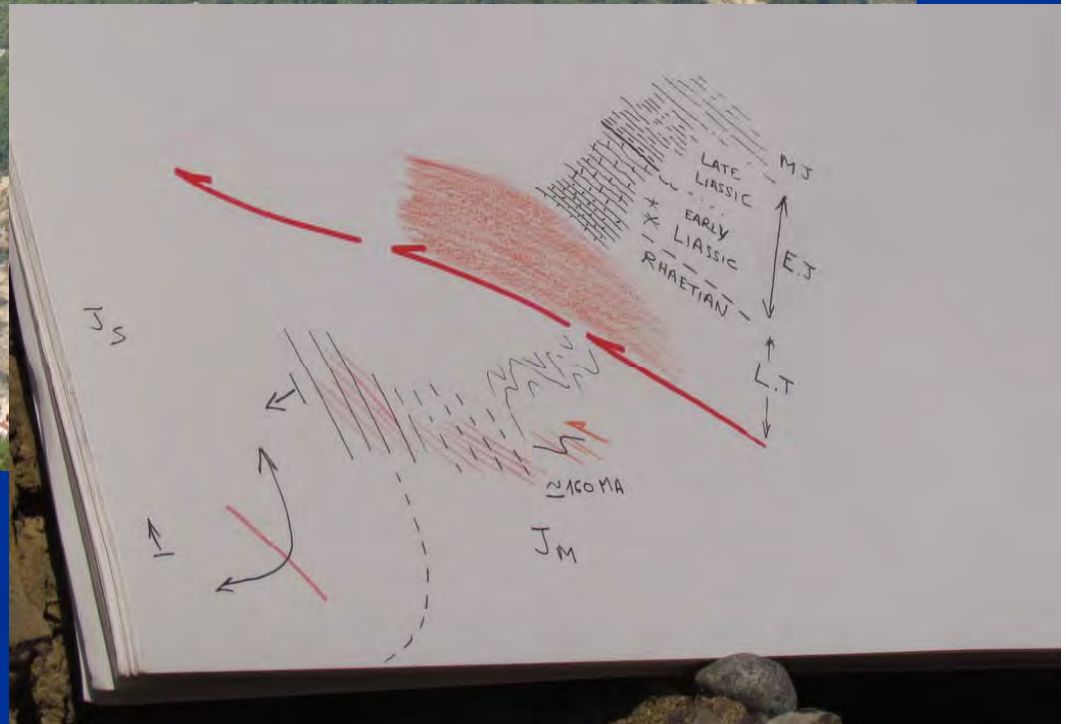 MJ
LATE
LIASSIC
EARLY
LIASSIC
E.J
RHAETIAN
L.T
JS
≃160 MA
JM